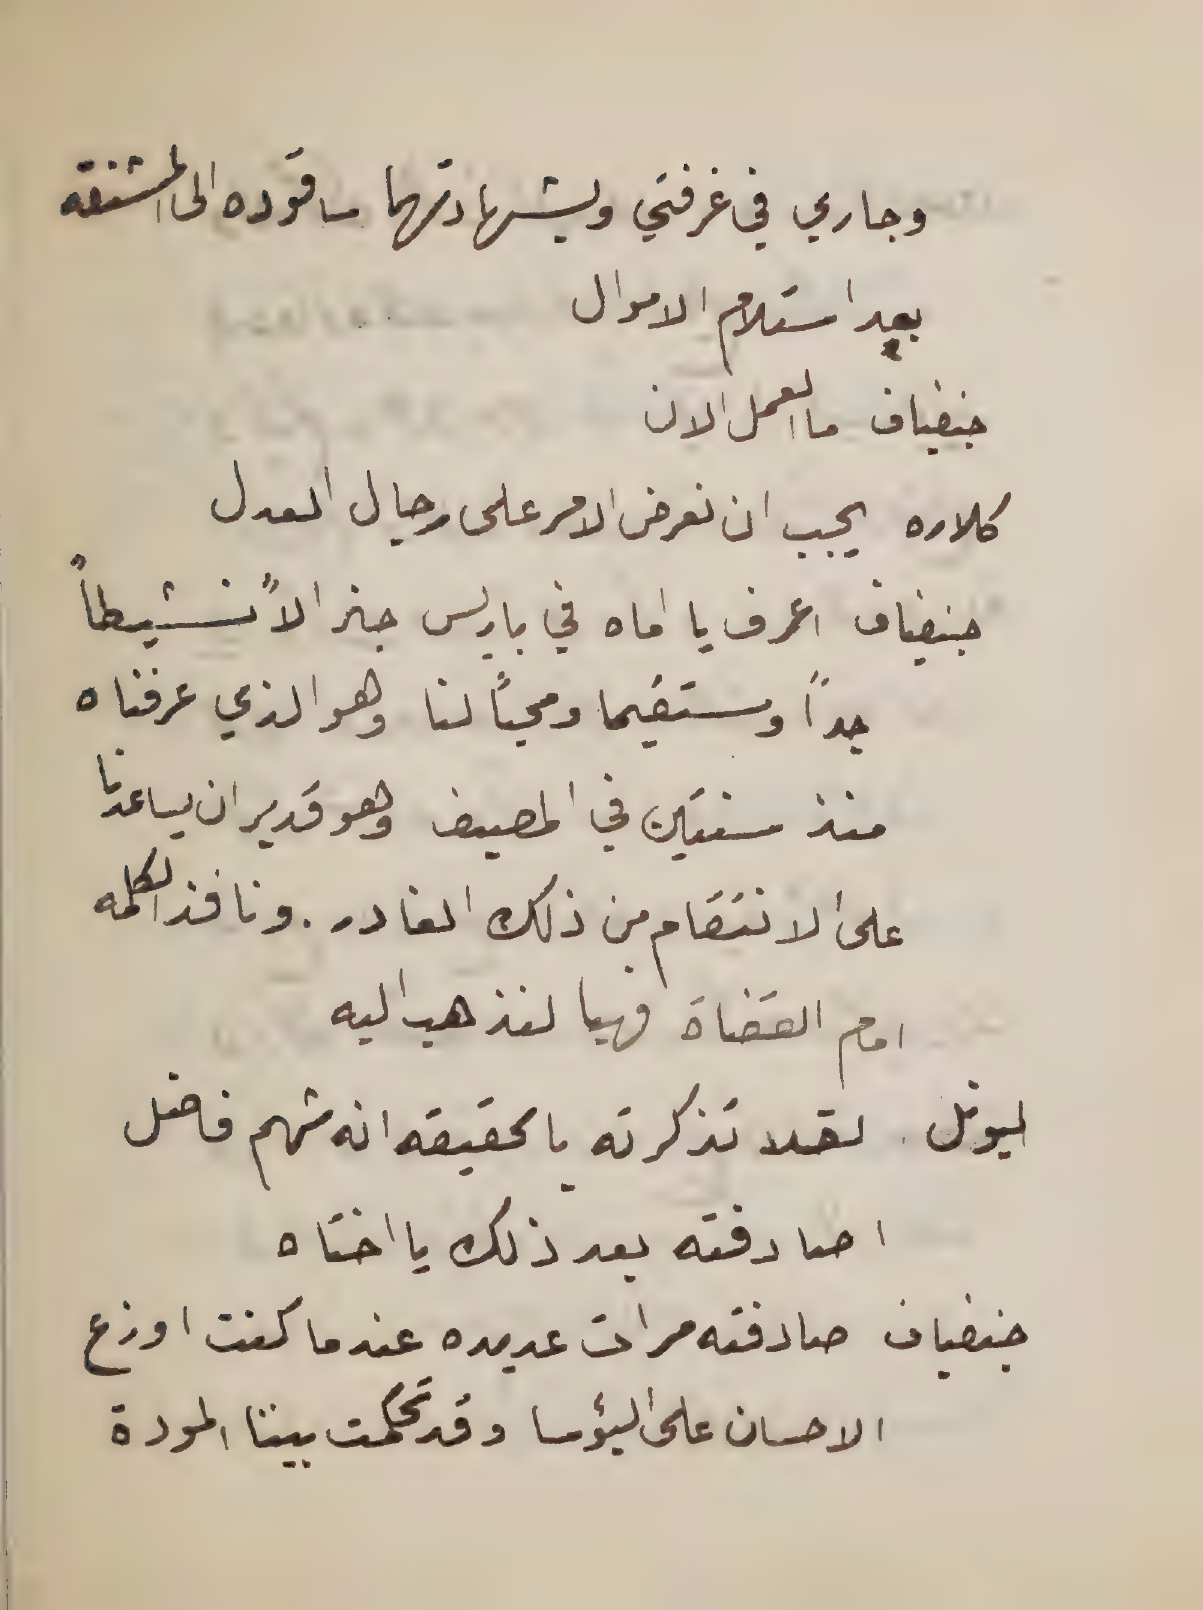 وجاري في غرفتي وبشهادتهما ساقوده الى المشنقه
بعد استلام الاموال
جنفياف ما العمل الان
كلاره يجب ان نعرض الامر على رجال العدل
جنفياف اعرف يا اماه في باريس جنرالاً نشيطاً
جداً ومستقيما ومحباً لنا وهو الذي عرفناه
منذ سنتين في المصيف وهو قدير ان يساعدنا
على الانتقام من ذلك الغادر . ونافذ الكلمه
امام القضاة فهيا لنذهب اليه
ليونل . لقد تذكرته يالحقيقه انه شهم فاضل
اصادفته بعد ذلك يا اختاه
جنفياف صادفته مرات عديده عندما كنت اوزع
الاحسان على البؤسا وقد تحكمت بيننا المودة